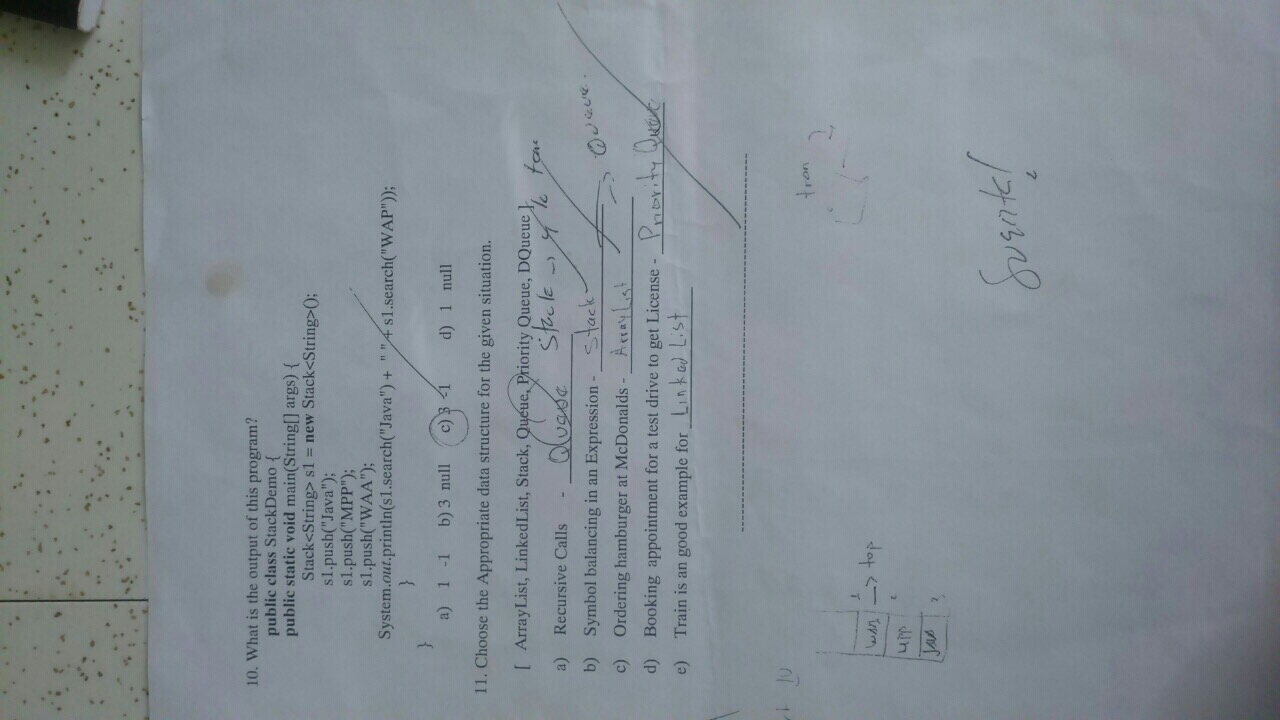 10. What is the output of this program?
public class StackDemo {
public static void main(String[] args) {
Stack<String> s1 = new Stack<String>();
s1.push("Java");
s1.push("MPP");
s1.push("WAA");
System.out.println(s1.search("Java") + " " + s1.search("WAP"));
}
}
a) 1 -1 b) 3 null c) 3 -1 d) 1 null
11. Choose the Appropriate data structure for the given situation.
[ ArrayList, LinkedList, Stack, Queue, Priority Queue, DQueue ]
a) Recursive Calls - Queue Stack →
b) Symbol balancing in an Expression - Stack → Queue.
c) Ordering hamburger at McDonalds - ArrayList
d) Booking appointment for a test drive to get License - Priority Queue
e) Train is an good example for Linked List
IV
1
→ top
MPP 2
Java